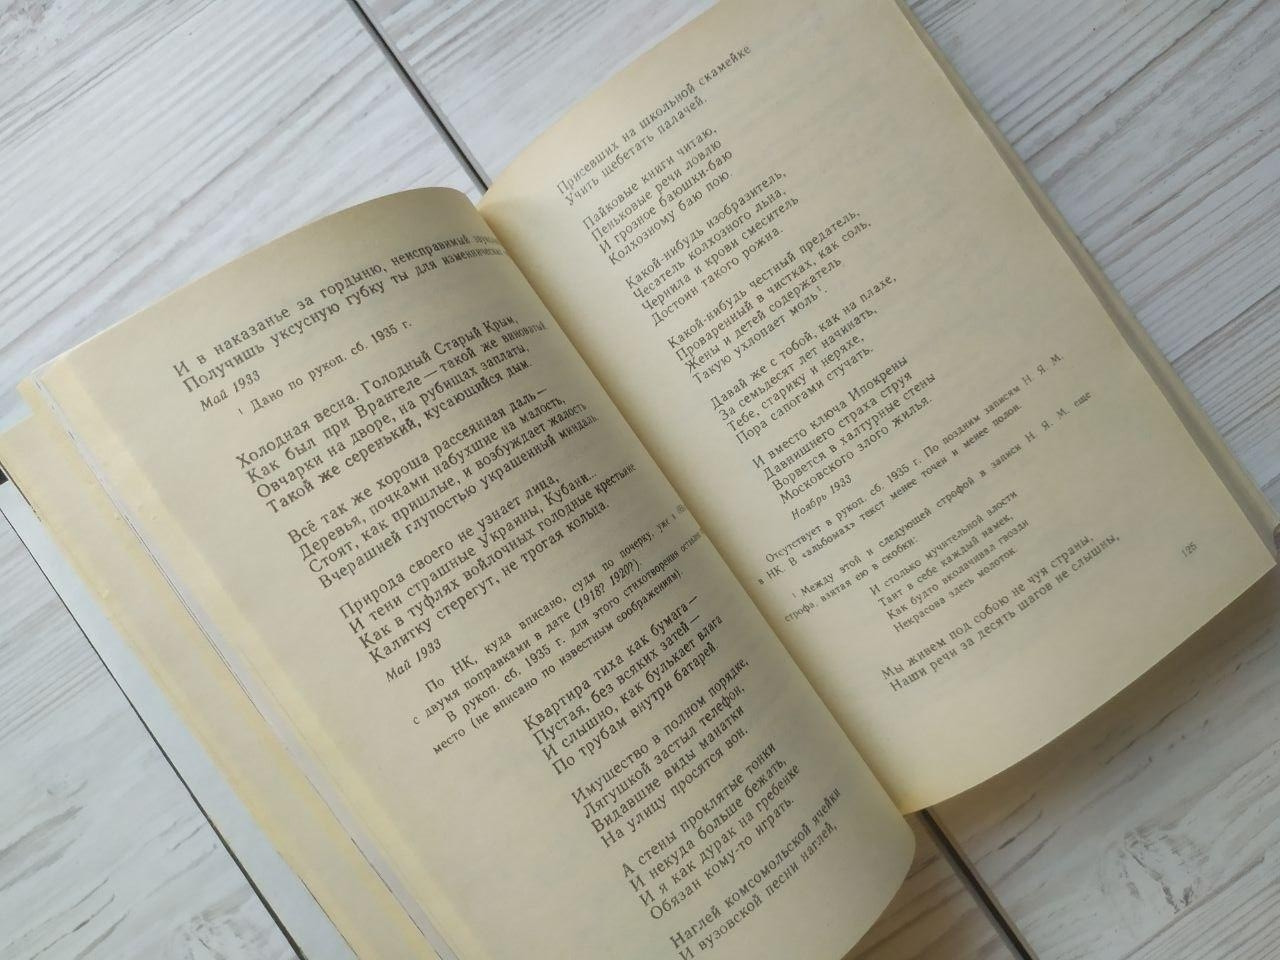 И в наказанье за гордыню, неисправимый
Получишь уксусную губку ты для изменнических
Май 1933
¹ Дано по рукоп. сб. 1935 г.
Холодная весна. Голодный Старый Крым,
Как был при Врангеле — такой же виноватый.
Овчарки на дворе, на рубищах заплаты,
Такой же серенький, кусающийся дым.
Всё так же хороша рассеянная даль —
Деревья, почками набухшие на малость,
Стоят, как пришлые, и возбуждает жалость
Вчерашней глупостью украшенный миндаль.
Природа своего не узнает лица,
И тени страшные Украины, Кубани...
Как в туфлях войлочных голодные крестьяне
Калитку стерегут, не трогая кольца.
Май 1933
По НК, куда вписано, судя по почерку, уже в
с двумя поправками в дате (1918? 1920?).
В рукоп. сб. 1935 г. для этого стихотворения
место (не вписано по известным соображениям).
Квартира тиха как бумага —
Пустая, без всяких затей —
И слышно, как булькает влага
По трубам внутри батарей.
Имущество в полном порядке,
Лягушкой застыл телефон,
Видавшие виды манатки
На улицу просятся вон.
А стены проклятые тонки
И некуда больше бежать,
И я как дурак на гребенке
Обязан кому-то играть.
Наглей комсомольской ячейки
И вузовской песни наглей,
Присевших на школьной скамейке
Учить щебетать палачей.
Пайковые книги читаю,
Пеньковые речи ловлю
И грозное баюшки-баю
Колхозному баю пою.
Какой-нибудь изобразитель,
Чесатель колхозного льна,
Чернила и крови смеситель
Достоин такого рожна.
Какой-нибудь честный предатель,
Проваренный в чистках, как соль,
Жены и детей содержатель
Такую ухлопает моль¹.
Давай же с тобой, как на плахе,
За семьдесят лет начинать,
Тебе, старику и неряхе,
Пора сапогами стучать.
И вместо ключа Ипокрены
Давнишнего страха струя
Ворвется в халтурные стены
Московского злого жилья.
Ноябрь 1933
Отсутствует в рукоп. сб. 1935 г. По поздним записям Н. Я. М.
в НК. В «альбомах» текст менее точен и менее полон.
¹ Между этой и следующей строфой в записи Н. Я. М. еще
строфа, взятая ею в скобки:
И столько мучительной злости
Таит в себе каждый намек,
Как будто вколачивал гвозди
Некрасова здесь молоток.
Мы живем под собою не чуя страны,
Наши речи за десять шагов не слышны,
125